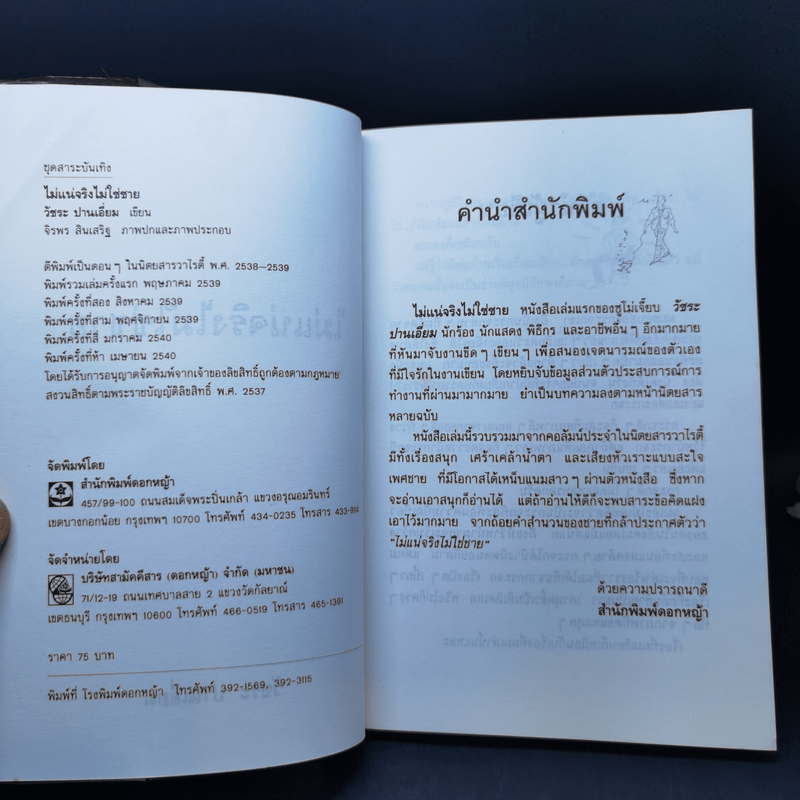 ชุดสาระบันเทิง
ไม่แน่จริงไม่ใช่ชาย
วัชระ ปานเอี่ยม เขียน
จิรพร สินเสริฐ ภาพปกและภาพประกอบ
ตีพิมพ์เป็นตอนๆ ในนิตยสารวาไรตี้ พ.ศ. 2538-2539
พิมพ์รวมเล่มครั้งแรก พฤษภาคม 2539
พิมพ์ครั้งที่สอง สิงหาคม 2539
พิมพ์ครั้งที่สาม พฤศจิกายน 2539
พิมพ์ครั้งที่สี่ มกราคม 2540
พิมพ์ครั้งที่ห้า เมษายน 2540
โดยได้รับการอนุญาตจัดพิมพ์จากเจ้าของลิขสิทธิ์ถูกต้องตามกฎหมาย
สงวนสิทธิ์ตามพระราชบัญญัติลิขสิทธิ์ พ.ศ. 2537
จัดพิมพ์โดย
สำนักพิมพ์ดอกหญ้า
457/99-100 ถนนสมเด็จพระปิ่นเกล้า แขวงอรุณอมรินทร์
เขตบางกอกน้อย กรุงเทพฯ 10700 โทรศัพท์ 434-0235 โทรสาร
จัดจำหน่ายโดย
บริษัทสามัคคีสาร (ดอกหญ้า) จำกัด (มหาชน)
71/12-19 ถนนเทศบาลสาย 2 แขวงวัดกัลยาณ์
เขตธนบุรี กรุงเทพฯ 10600 โทรศัพท์ 466-0519 โทรสาร 465-1391
ราคา 75 บาท
พิมพ์ที่ โรงพิมพ์ดอกหญ้า โทรศัพท์ 392-1569, 392-3115
คำนำสำนักพิมพ์
ไม่แน่จริงไม่ใช่ชาย หนังสือเล่มแรกของซูโม่เจี๊ยบ วัชระ
ปานเอี่ยม นักร้อง นักแสดง พิธีกร และอาชีพอื่นๆ อีกมากมาย
ที่หันมาจับงานขีดๆ เขียนๆ เพื่อสนองเจตนารมณ์ของตัวเอง
ที่มีใจรักในงานเขียน โดยหยิบจับข้อมูลส่วนตัวประสบการณ์การ
ทำงานที่ผ่านมามากมาย ยำเป็นบทความลงตามหน้านิตยสาร
หลายฉบับ
หนังสือเล่มนี้รวบรวมมาจากคอลัมน์ประจำในนิตยสารวาไรตี้
มีทั้งเรื่องสนุก เศร้าเคล้าน้ำตา และเสียงหัวเราะแบบสะใจ
เพศชาย ที่มีโอกาสได้เหน็บแนมสาวๆ ผ่านตัวหนังสือ ซึ่งหาก
จะอ่านเอาสนุกก็อ่านได้ แต่ถ้าอ่านให้ดีก็จะพบสาระข้อคิดแฝง
เอาไว้มากมาย จากถ้อยคำสำนวนของชายที่กล้าประกาศตัวว่า
"ไม่แน่จริงไม่ใช่ชาย"
ด้วยความปรารถนาดี
สำนักพิมพ์ดอกหญ้า